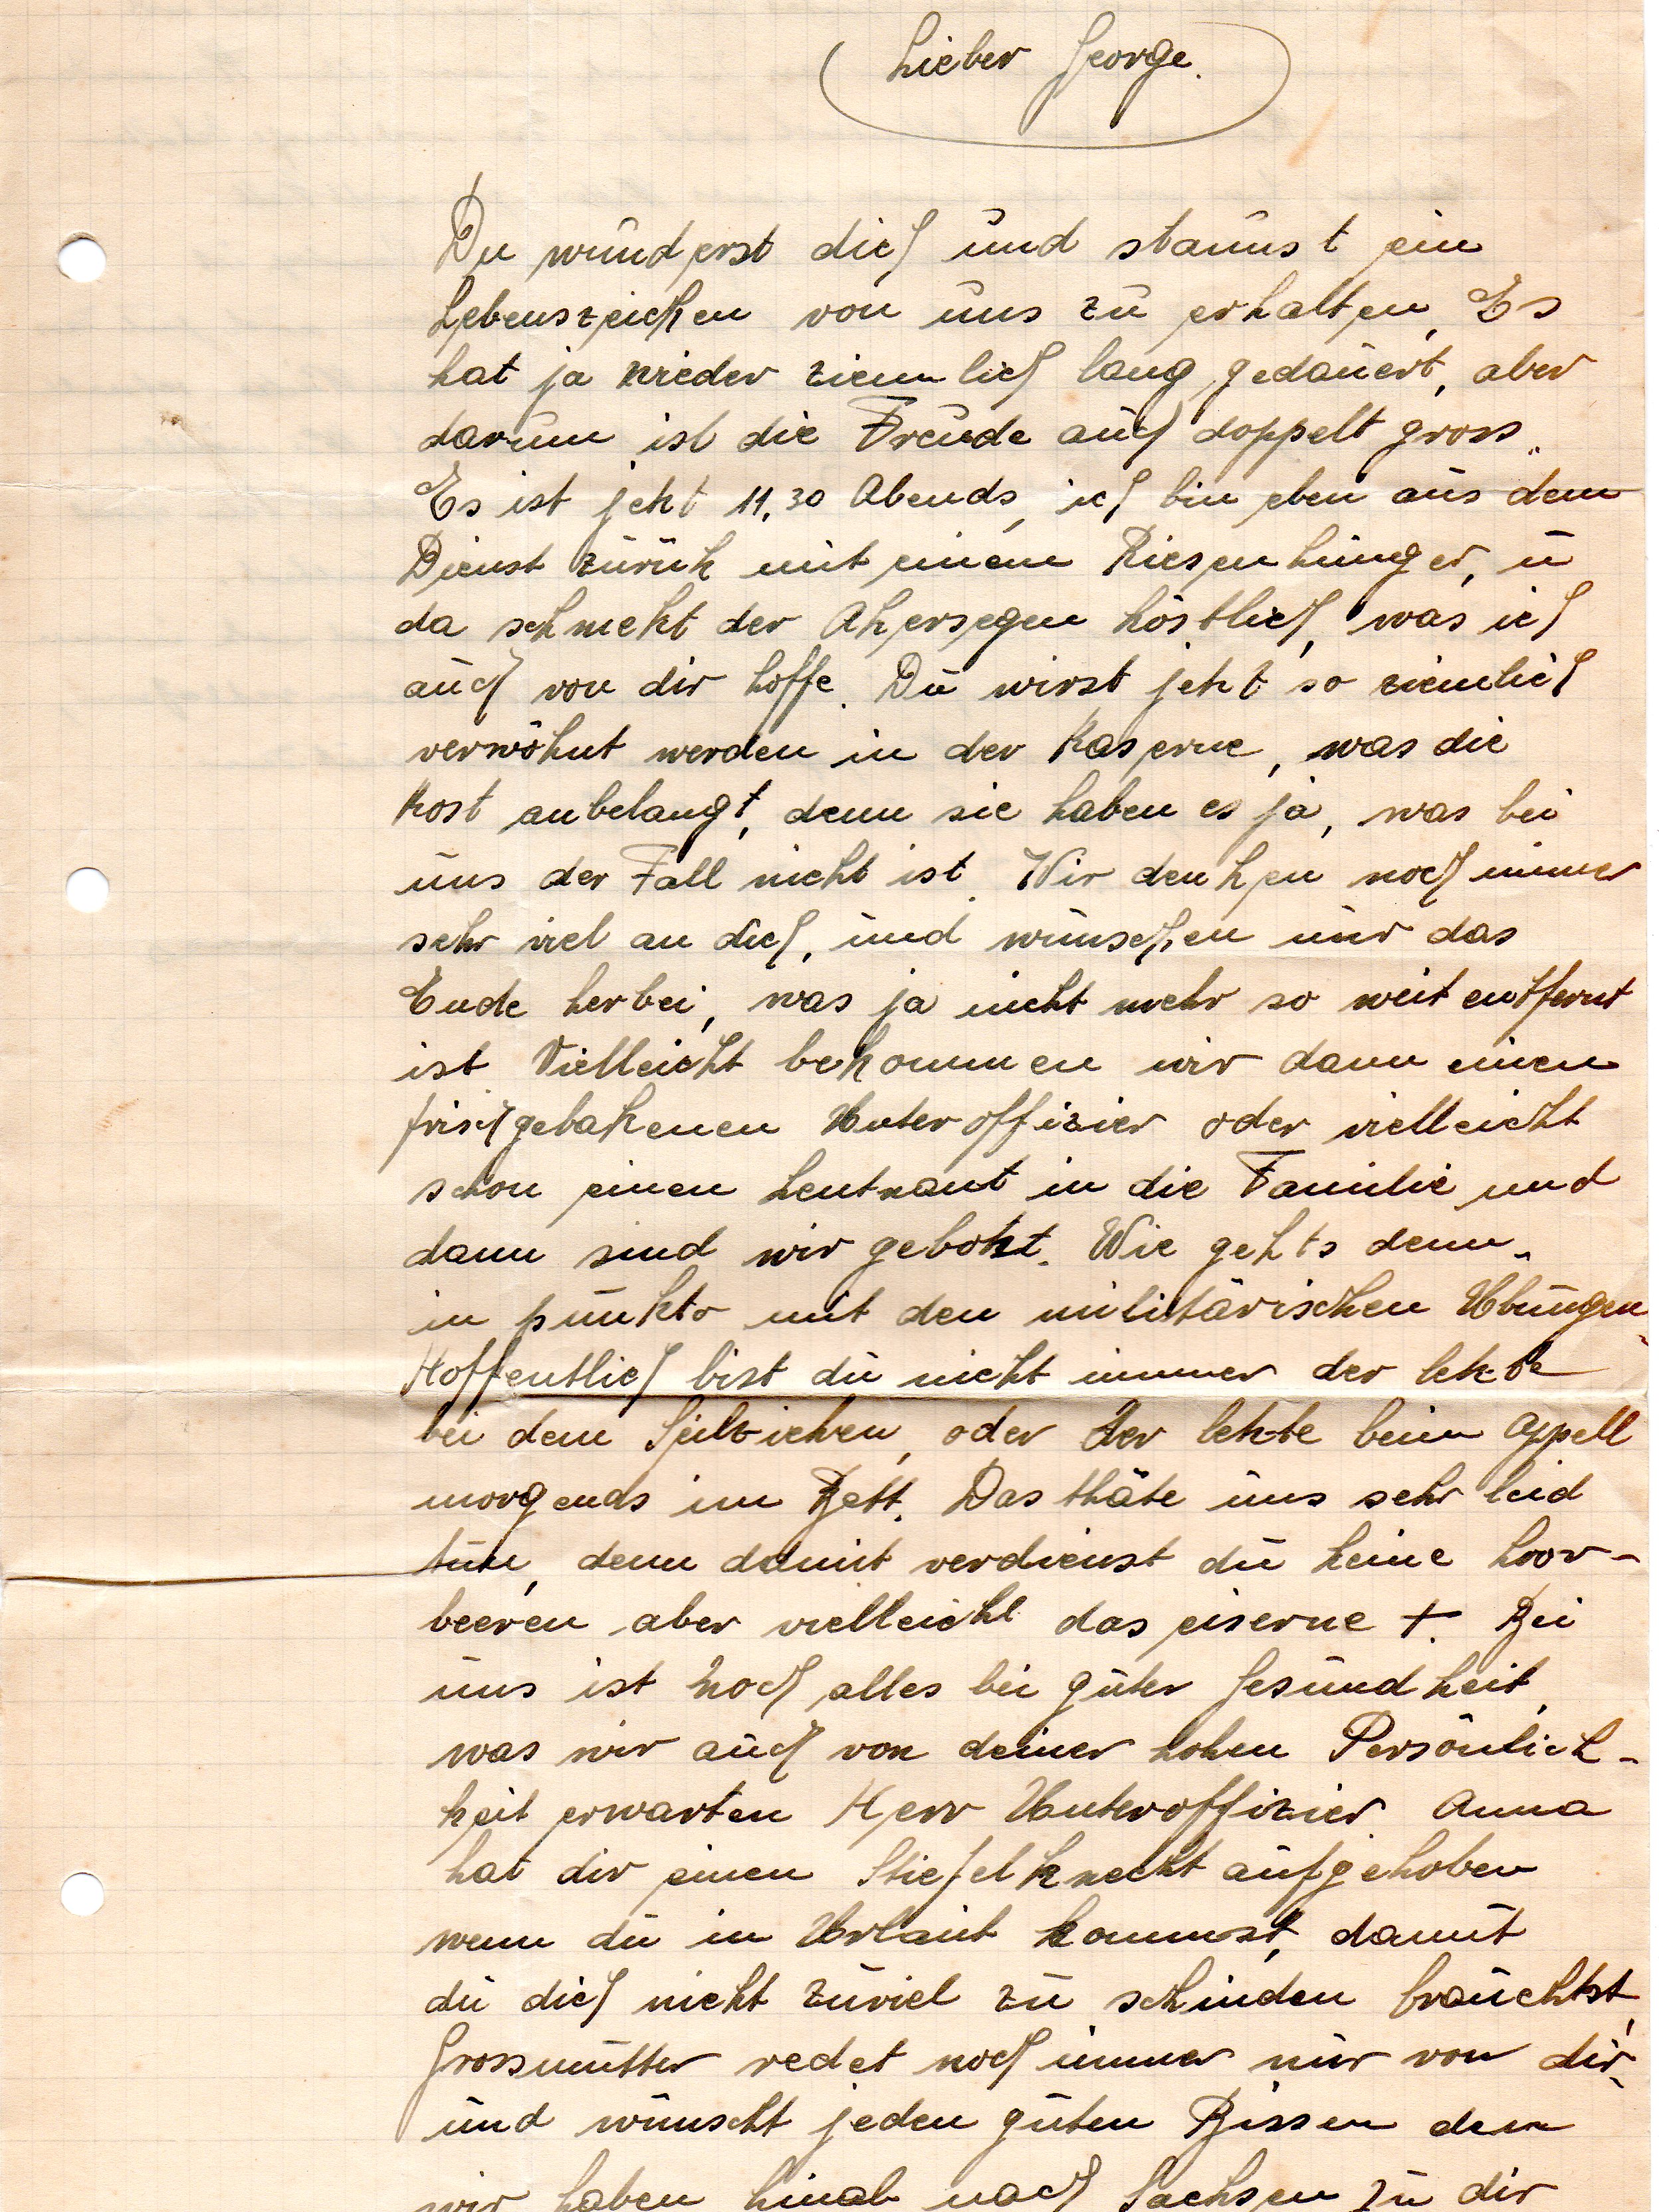 Lieber George.
Du wunderst dich und staunst ein
Lebenszeichen von uns zu erhalten, Es
hat ja wieder ziemlich lang gedauert, aber
darum ist die Freude auch doppelt gross.
Es ist jekt 11.30 Abends, ich bin eben aus dem
Dienst zurük mit einem Riesenhunger, u
da schmekt der Akersegen köstlich, was ich
auch von dir hoffe. Du wirst jekt so ziemlich
verwöhnt werden in der Kaserne, was die
Kost anbelangt, denn sie haben es ja, was bei
uns der Fall nicht ist. Wir denken noch immer
sehr viel an dich, und wünschen nur das
Ende herbei, was ja nicht mehr so weit entfernt
ist. Vielleicht bekommen wir dann einen
frischgebakenen Unteroffizier oder vielleicht
schon einen Leutnant in die Familie und
dann sind wir gebokt. Wie gehts denn
in punkto mit den militärischen Übungen
Hoffentlich bist du nicht immer der lekte
bei dem Seilziehen, oder der lekte beim Appell
morgends im Bett. Das thäte uns sehr leid
tun, denn damit verdienst du keine Loor-
beeren aber vielleicht das eiserne +. Bei
uns ist noch alles bei guter Gesundheit,
was wir auch von deiner hohen Persönlich-
keit erwarten Herr Unteroffizier Anna
hat dir einen Stiefelknecht aufgehoben
wenn du in Urlaub kommst, damit
du dich nicht zuviel zu schinden brauchtst,
Grossmutter redet noch immer nur von dir
und wünscht jeden guten Bissen den
wir haben hinab nach Sachsen zu dir